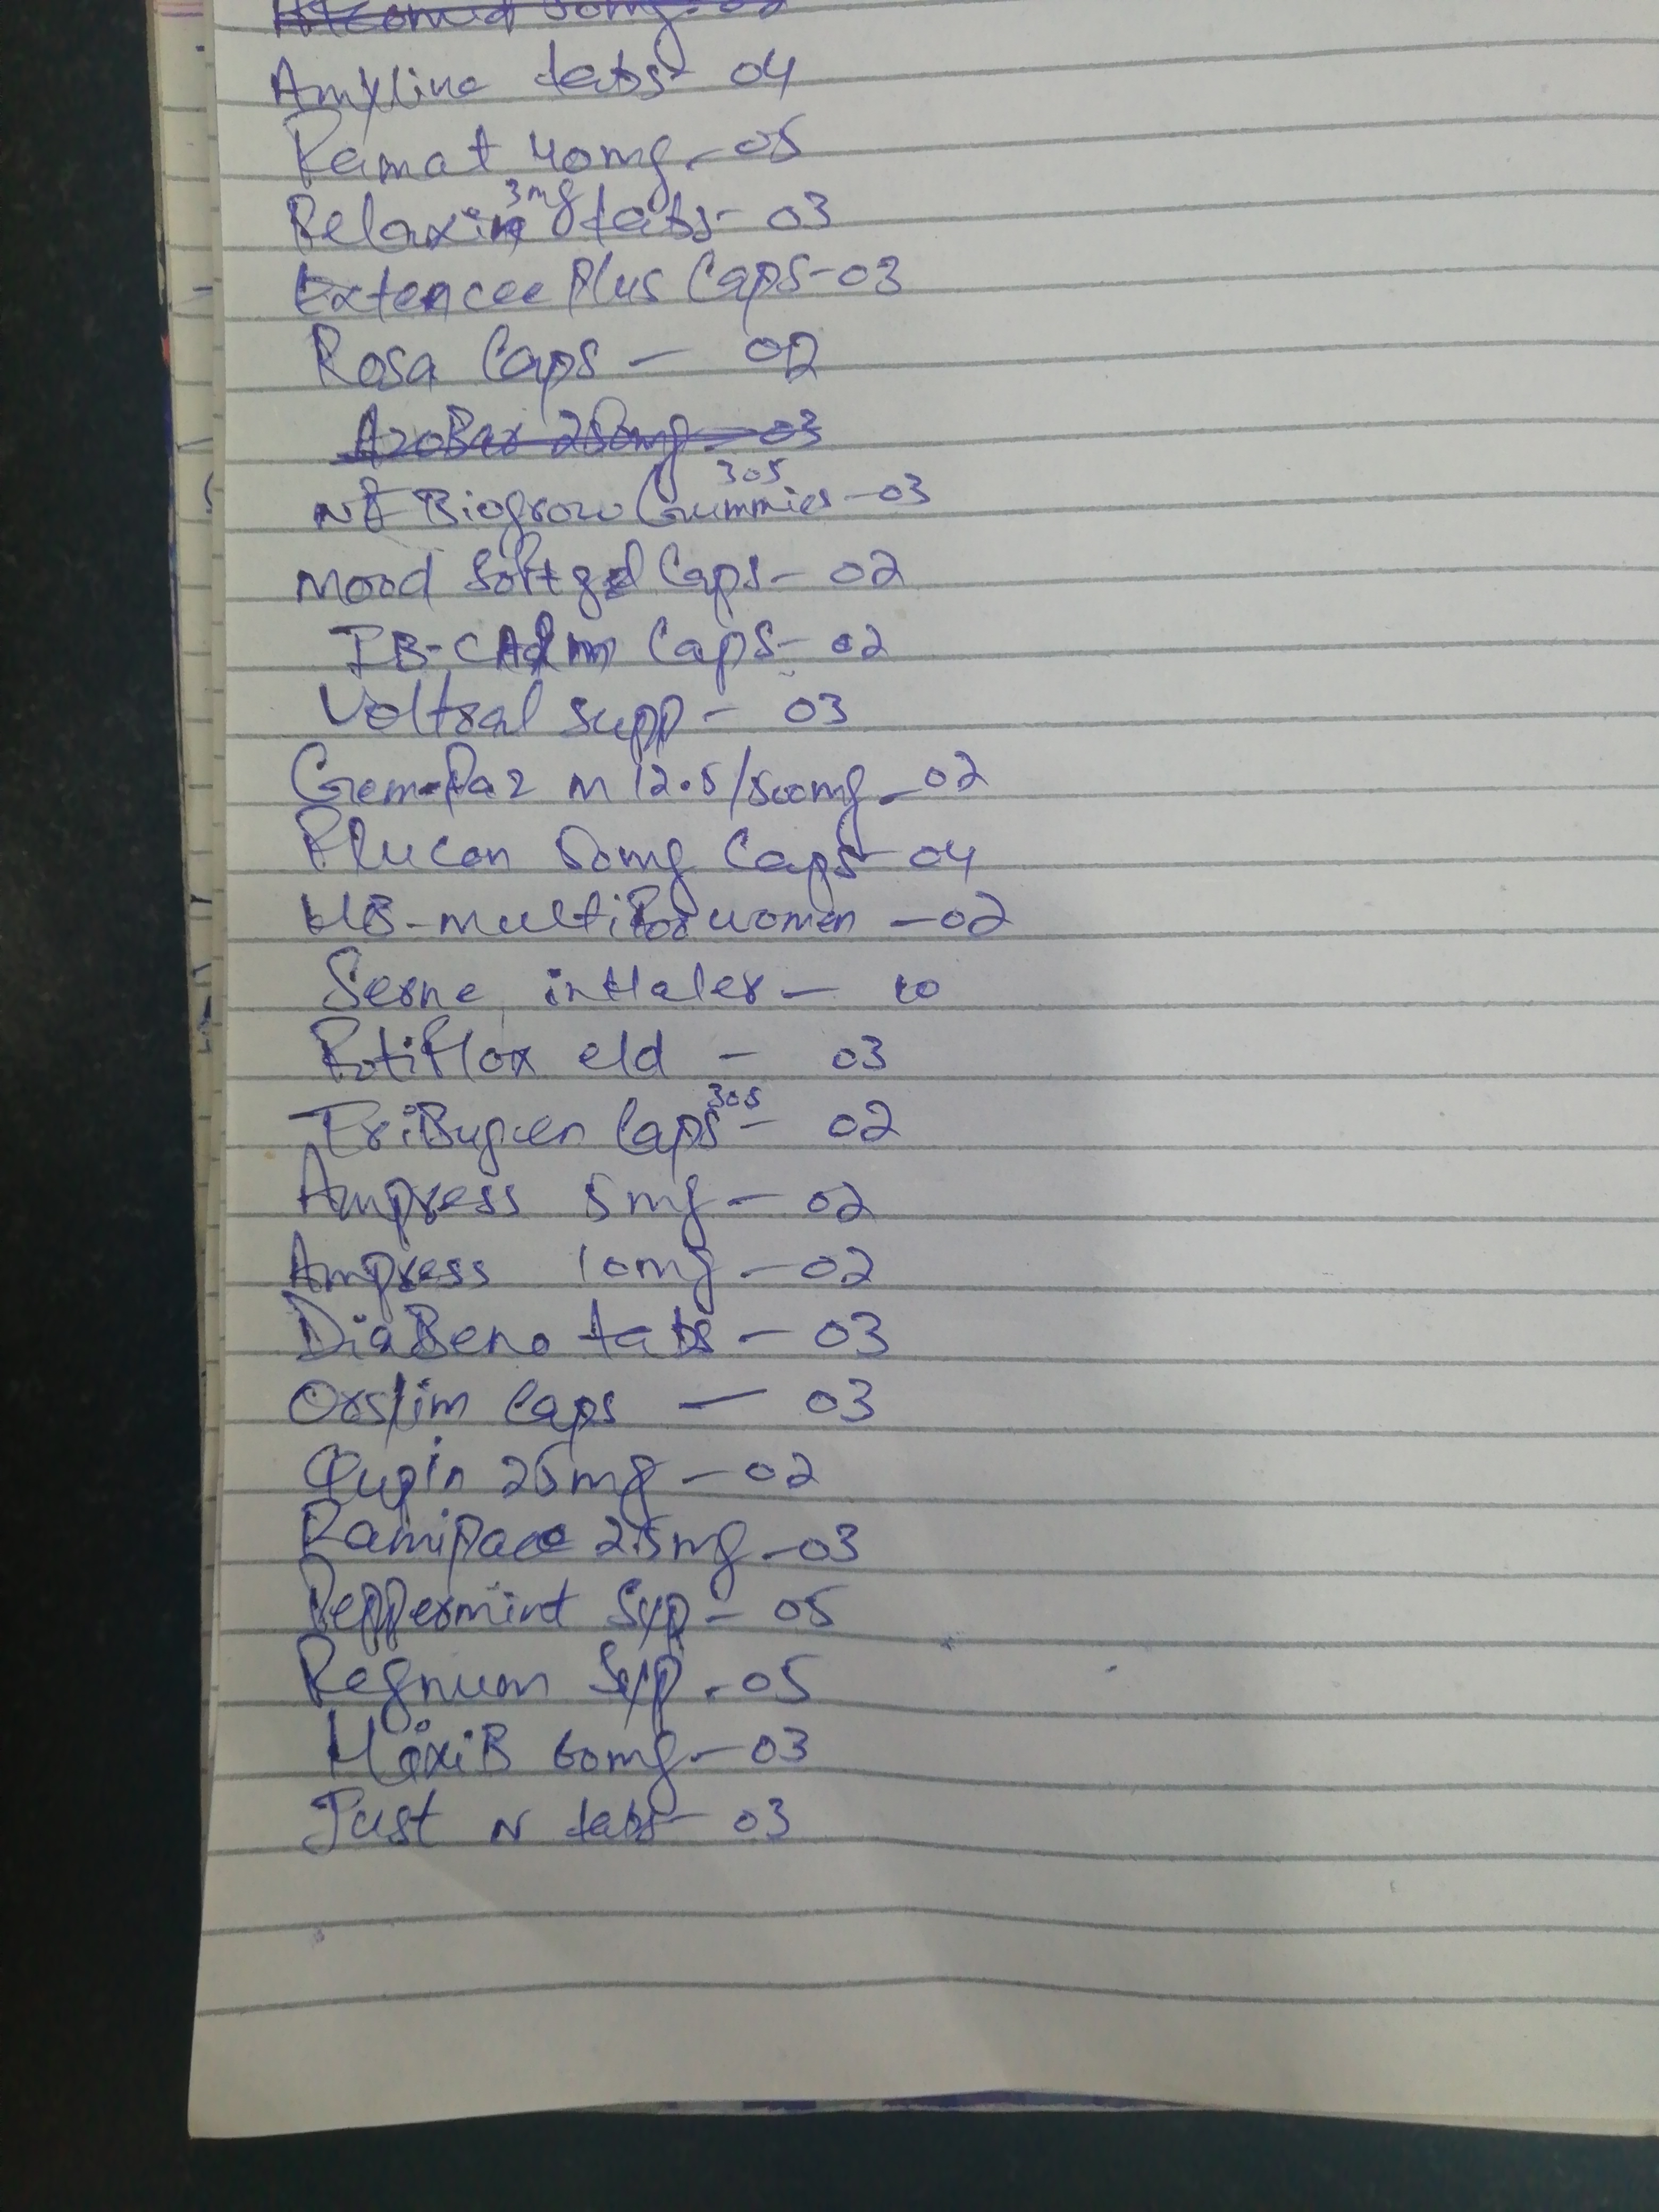 Amyline tabs - 04
Ramat 40mg - 05
Relaxin 3mg tabs - 03
Extencee Plus Caps - 03
Rosa Caps - 02
AzoBar 250mg - 03
Biogrow Gummies 30s - 03
Mood Softgel Caps - 02
IB-CAlm Caps - 02
Voltral supp - 03
Gem-Paz m 12.5/500mg - 02
Flucon 50mg Caps - 04
HB-multi for women - 02
Serne intHaler - 10
Potiflox eld - 03
Caps 30s - 02
Ampress 5mg - 02
Ampress 10mg - 02
DiaBeno tabs - 03
Orslim Caps - 03
Qupin 25mg - 02
Ramipace 2.5mg - 03
Peppermint Syp - 05
Regnum Syp - 05
60mg - 03
Just N tabs - 03